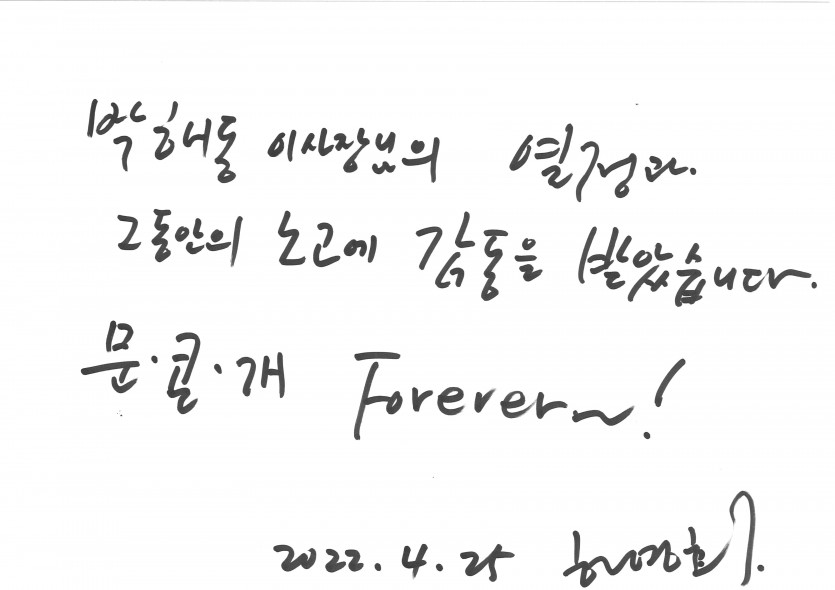 박해동 이사장님의 열정과
그동안의 노고에 감동을 받았습니다.
문·콜·개 Forever~!
2022.4.25